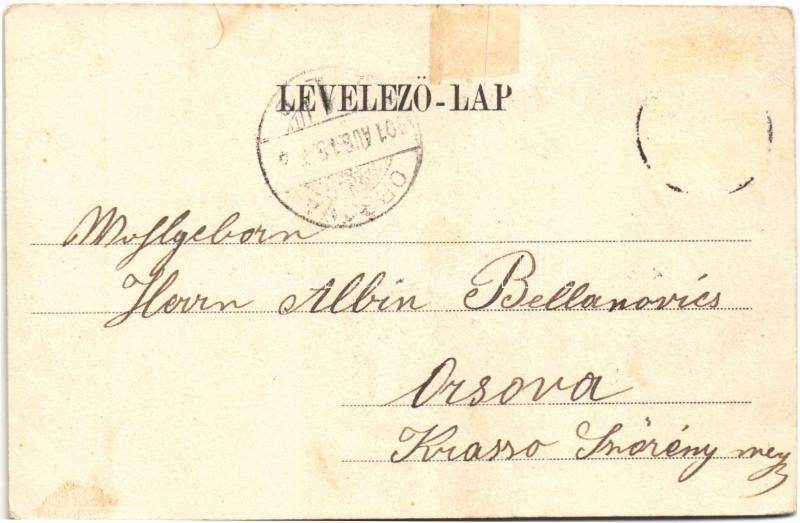 LEVELEZŐ-LAP
901 AUG
ORSOVA
Wohlgeborn
Herrn Albin Bellanovics
Orsova
Krasso Szörény meg